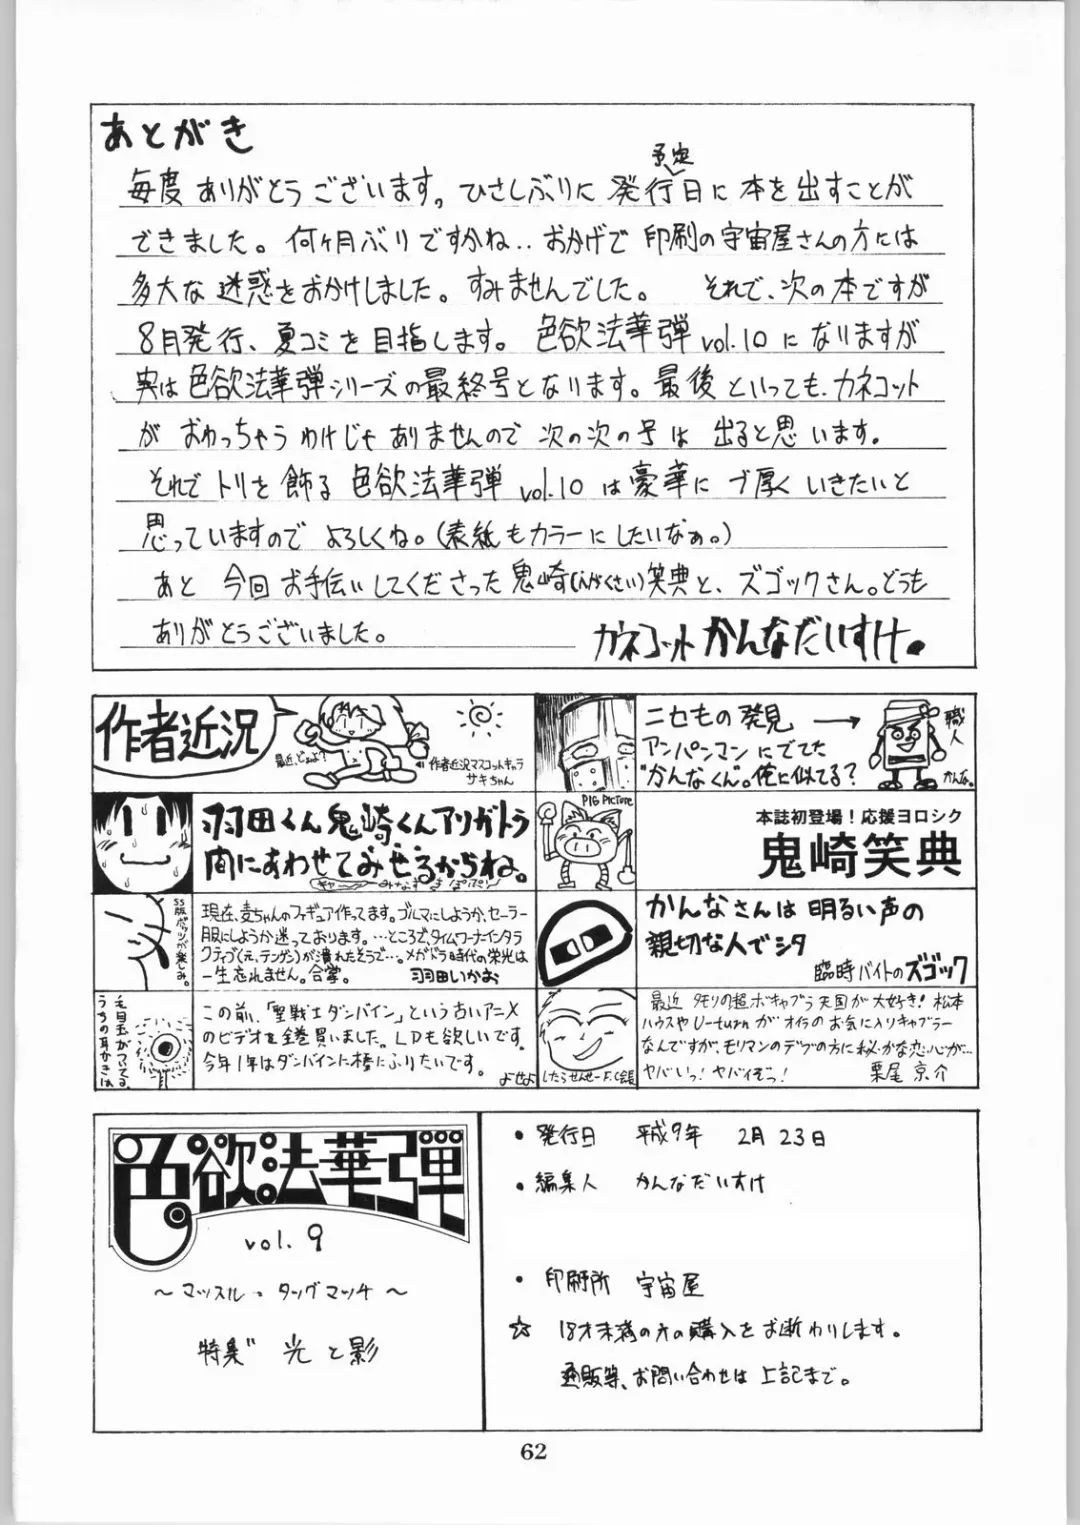 あとがき
予定
毎度ありがとうございます。ひさしぶりに発行日に本を出すことが
できました。何ヶ月ぶりですかね‥おかげで印刷の宇宙屋さんの方には
多大な迷惑をおかけしました。すみませんでした。 それで、次の本ですが
8月発行、夏コミを目指します。色欲法華弾vol.10になりますが
実は色欲法華弾シリーズの最終号となります。最後といっても、カネコット
がおわっちゃうわけじゃありませんので次の次の号は出ると思います。
それでトリを飾る色欲法華弾vol.10は豪華にブ厚くいきたいと
思っていますのでよろしくね。(表紙もカラーにしたいなぁ。)
あと今回お手伝いしてくださった鬼崎(えがくさい)笑典と、ズゴックさん。どうも
ありがとうございました。
カネコット かんなだいすけ。
作者近況
最近、どぉよ?
作者近況マスコットキャラ
サキちゃん
羽田くん鬼崎くんアリガトう
間にあわせてみせるからね。
SS版ボッツが楽しみ。
現在、麦ちゃんのフィギュア作ってます。ブルマにしようか、セーラー
服にしようか迷っております。…ところで、タイムワーナーインタラ
クティブ(え、テンゲン)が潰れたそうで…。メガドラ時代の栄光は
一生忘れません。合掌。 羽田いかお
毛目玉がついてる、
うちの耳かきは
この前、「聖戦士ダンバイン」という古いアニメ
のビデオを全巻買いました。LDも欲しいです。
今年1年はダンバインに捧にふりたいです。
よせよ
ニセもの発見 →
アンパンマンにでてた
"かんなくん"。俺に似てる?
職人
かんな。
PIG PICTURE
本誌初登場!応援ヨロシク
鬼崎笑典
かんなさんは明るい声の
親切な人でシタ
臨時バイトのズゴック
したらせんせーF.C会長
最近 タモリの超ボキャブラ天国が大好き! 松本
ハウスやU-turnがオイラのお気に入りキャブラー
なんですが、モリマンのデブの方に秘かな恋心が…
ヤバいっ! ヤバイぞっ! 栗尾京介
色欲法華弾
vol.9
～マッスル・タッグマッチ～
特集 光と影
・発行日 平成9年 2月23日
・編集人 かんなだいすけ
・印刷所 宇宙屋
☆ 18才未満の方の購入をお断わりします。
通販等、お問い合わせは上記まで。
62